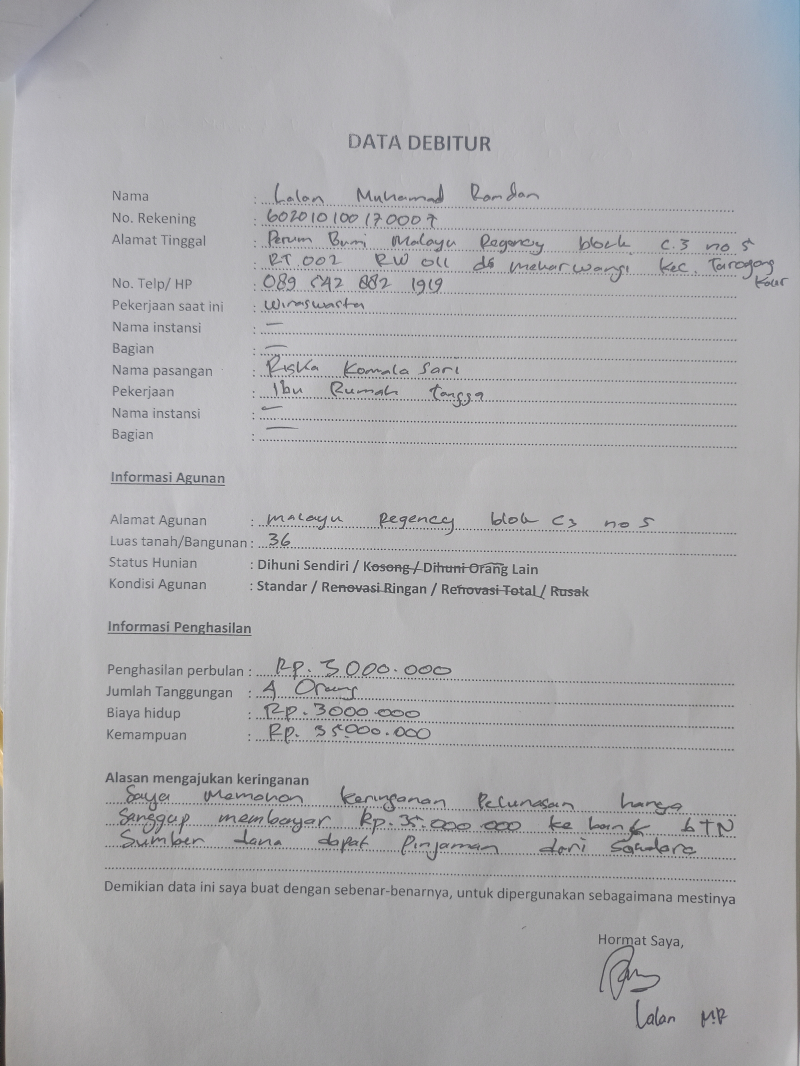 DATA DEBITUR
Nama : Lalan Muhamad Ramdan
No. Rekening : 60201010017000
Alamat Tinggal : Perum Bumi Malayu Regency block C.3 no 5
RT 002 RW 011 ds mekarwangi kec. Tarogong
Kaler
No. Telp/ HP : 089 882 1919
Pekerjaan saat ini : Wiraswasta
Nama instansi : —
Bagian : —
Nama pasangan : Riska Komala Sari
Pekerjaan : Ibu Rumah tangga
Nama instansi : —
Bagian : —
Informasi Agunan
Alamat Agunan : Malayu Regency blok C3 no 5
Luas tanah/Bangunan : 36
Status Hunian : Dihuni Sendiri / Kosong / Dihuni Orang Lain
Kondisi Agunan : Standar / Renovasi Ringan / Renovasi Total / Rusak
Informasi Penghasilan
Penghasilan perbulan : Rp. 3000.000
Jumlah Tanggungan : 4 Orang
Biaya hidup : Rp. 3000.000
Kemampuan : Rp. 35.000.000
Alasan mengajukan keringanan
Saya Memohon keringanan Pelunasan hanya
Sanggup membayar Rp. 35.000.000 ke bank bTN
Sumber dana dapat Pinjaman dari Saudara
Demikian data ini saya buat dengan sebenar-benarnya, untuk dipergunakan sebagaimana mestinya
Hormat Saya,
Lalan M.R